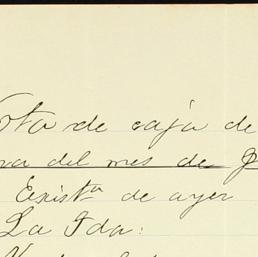 ota de caja de
va del mes de
Existª de ayer
La Ida: